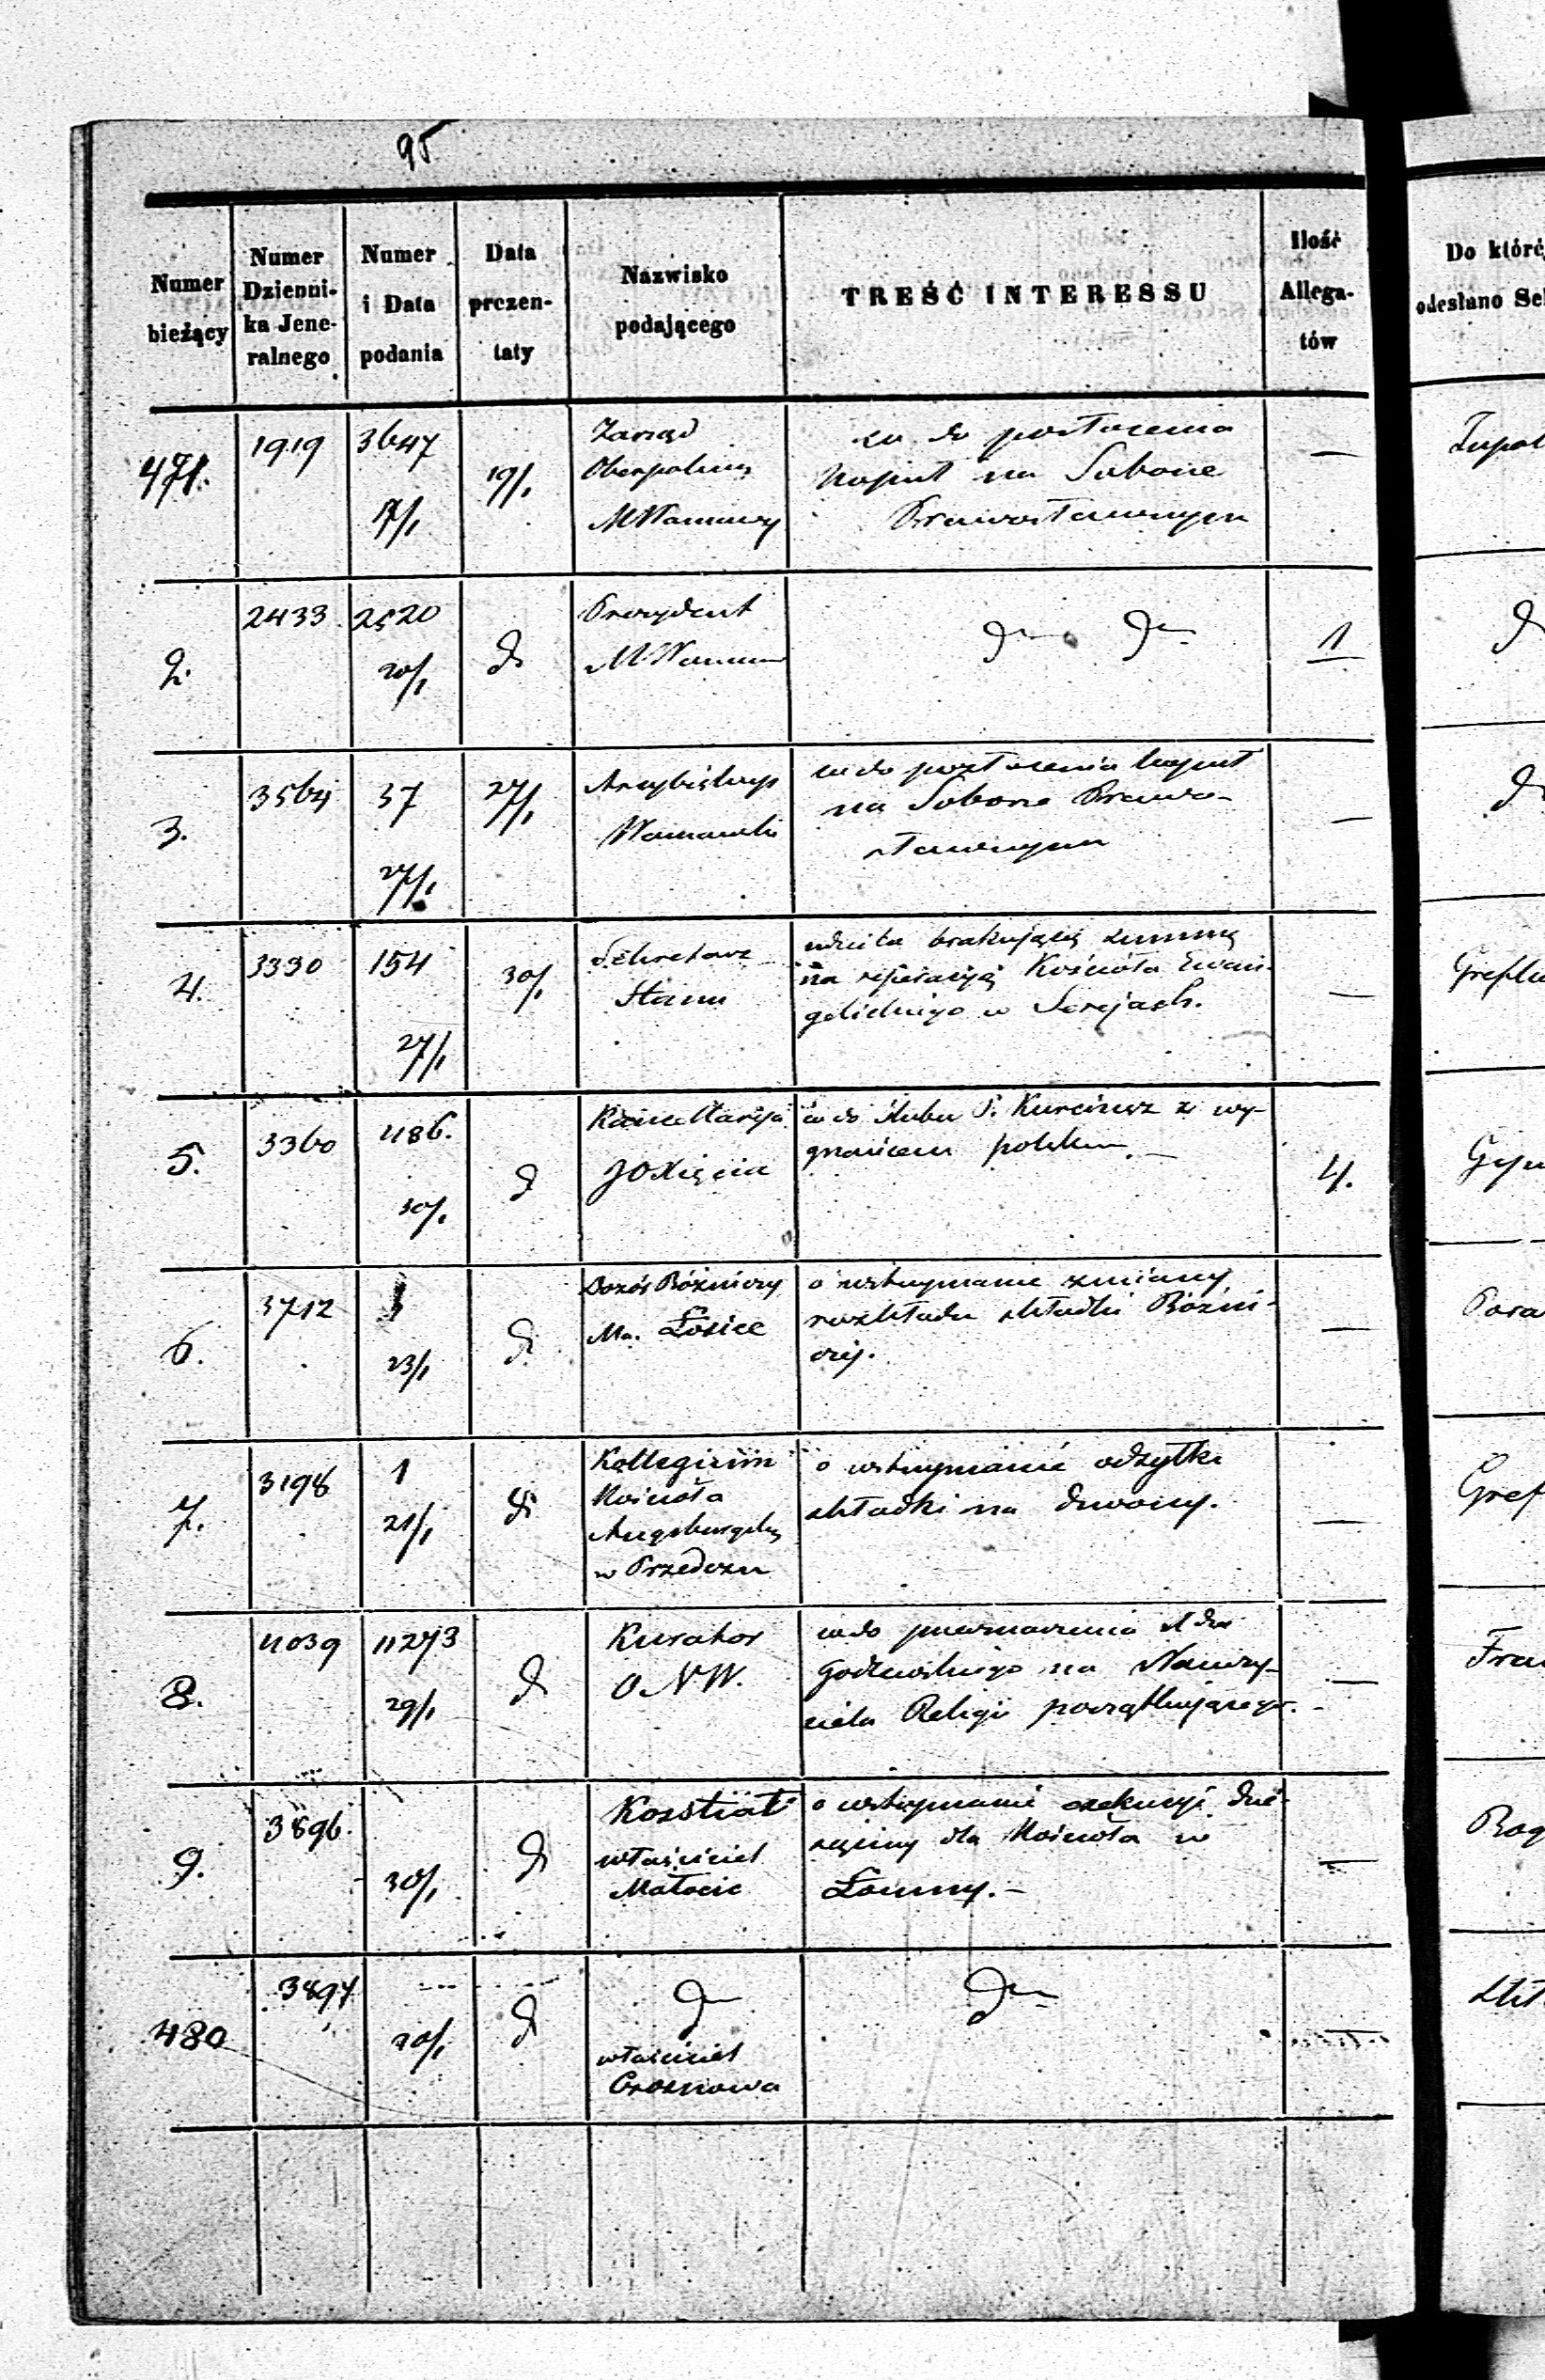 95
Numer bieżący
Numer Dzienni-ka Jene-ralnego
Numer i Data podania
Data prezen-taty
Nazwisko podającego
TREŚĆ INTERESSU
Ilość Allega-tów
Do któré
odesłano Se
471.
1919
3647
17/1
19/1
Zarząd
Oberpolicm
M Warszawy
co do pozłocenia
kopuł na Soborze
Prawosławnym
—
2.
2433
2520
20/1
do
Prezydent
M. Warszawy
do do
1
3.
3564
37
27/1
27/1
Arcybiskup
Warszawski
co do pozłocenia kopuł
na Soborze Prawo-
sławnym
—
4.
3330
154
27/1
30/1
Sekretarz
Stanu
udziela brakującą summę
na reparacyą Kościoła Ewan-
gelickiego w Serejach.
—
5.
3360
486.
30/1
do
Kancellarya
JO Xięcia
co do ślubu P. Kurciusz z wy-
gnańcem polskim. —
4.
6.
3712
23/1
do
Dozór Bóżniczy
Ma. Łosice
o wstrzymanie zmiany
rozkładu składki Bóźni-
czej.
—
7.
3198
1
21/1
do
Kollegium
Kościoła
Augsburgsk
w Przedczu
o wstrzymanie odsyłki
składki na dzwony.
—
8.
4039
11273
29/1
do
Kurator
O N W.
co do przeznaczenia Xdza
Godlewskiego na Nauczy-
ciela Religii początkującego.
—
9.
3896.
30/1
do
Kozstiał
właściciel
Małocic
o wstrzymanie exekucyi dzie-
sięciny dla Kościoła w
Łomny. —
—
480
3897
30/1
do
do
właściciel
Crosnowa
do